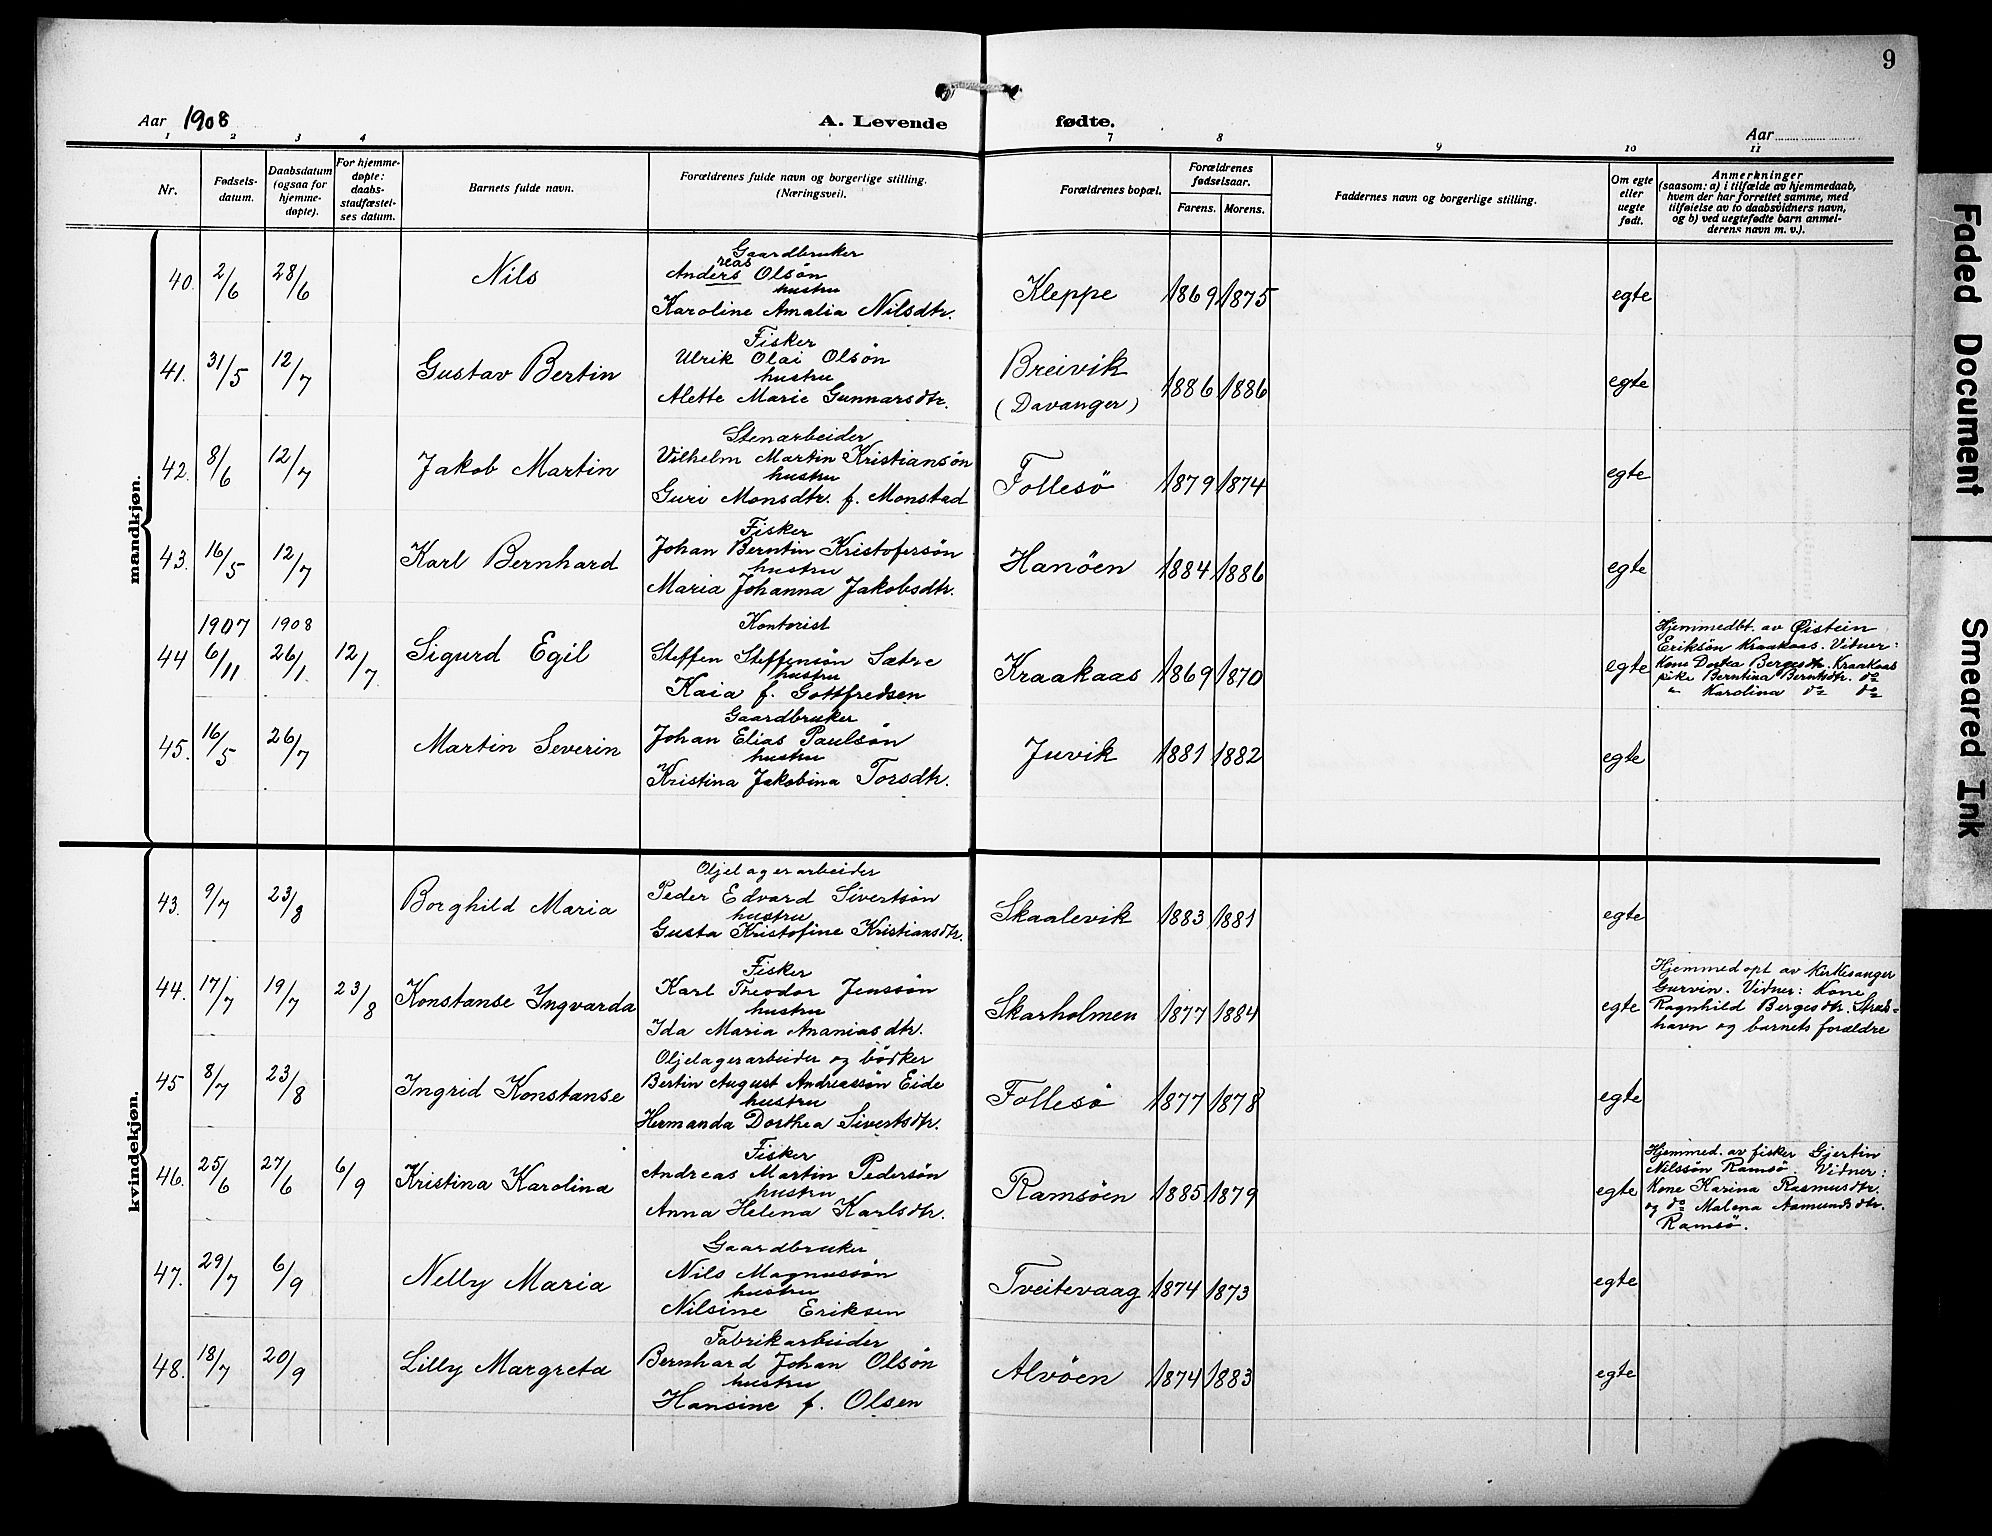 9
Aar 1908
A. Levende fødte.
Aar
1 2 3 4 7 8 9 10 11
Nr.
Fødsels-
datum.
Daabsdatum
(ogsaa for
hjemme-
døpte).
For hjemme-
døpte:
daabs-
stadfæstel-
ses datum.
Barnets fulde navn.
Forældrenes fulde navn og borgerlige stilling.
(Næringsvei).
Forældrenes bopæl.
Forældrenes
fødselsaar.
Farens. Morens.
Faddernes navn og borgerlige stilling.
Om egte
eller
uegte
født.
Anmerkninger
(saasom: a) i tilfælde av hjemmedaab,
hvem der har forrettet samme, med
tilføielse av to daabsvidners navn,
og b) ved uegtefødte barn anmel-
derens navn m. v.).
mandkjøn.
40. 2/6 28/6 Nils
Gaardbruker
reas
Anders Olsøn
hustru
Karoline Amalia Nilsdtr.
Kleppe 1869 1875 egte
41. 31/5 12/7 Gustav Bertin
Fisker
Ulrik Olai Olsøn
hustru
Alette Marie Gunnarsdtr.
Breivik
(Davanger)
1886 1886 egte
42. 8/6 12/7 Jakob Martin
Stenarbeider
Vilhelm Martin Kristiansøn
hustru
Guri Monsdtr. f. Monstad
Follesø 1879 1874 egte
43. 16/5 12/7 Karl Bernhard
Fisker
Johan Berntin Kristofersøn
hustru
Maria Johanna Jakobsdtr.
Hanøen 1884 1886 egte
1907 1908
44 6/11 26/1 12/7 Sigurd Egil
Kontorist
Steffen Steffensøn Sætre
hustru
Kaia f. Gottfredsen
Kraakaas 1869 1870 egte
Hjemmedbt. av Øistein
Eriksøn Kraakaas. Vidner:
Kone Dortea Bergesdtr. Kraakaas
pike Berntina Berntsdtr. do
" Karolina do do
45. 16/5 26/7 Martin Severin
Gaardbruker
Johan Elias Paulsøn
hustru
Kristina Jakobina Torsdtr.
Juvik 1881 1882 egte
kvindekjøn.
43. 9/7 23/8 Borghild Maria
Oljelagerarbeider
Peder Edvard Sivertsøn
hustru
Gusta Kristofine Kristiansdtr.
Skaalevik 1883 1881 egte
44. 17/7 19/7 23/8 Konstanse Ingvarda
Fisker
Karl Theodor Jenssøn
hustru
Ida Maria Ananiasdtr.
Skarholmen 1877 1884 egte
Hjemmedøpt av Kirkesanger
Gurvin. Vidner: Kone
Ragnhild Bergesdtr.
havn og barnets forældre
45 8/7 23/8 Ingrid Konstanse
Oljelagerarbeider og bødker
Bertin August Andreassøn Eide
hustru
Hermanda Dorthea Sivertsdtr.
Follesø 1877 1878 egte
46. 25/6 27/6 6/9 Kristina Karolina
Fisker
Andreas Martin Pedersøn
hustru
Anna Helena Karlsdtr.
Ramsøen 1885 1879 egte
Hjemmed. av fisker Gjertin
Nilssøn Ramsø. Vidner:
Kone Karina Rasmusdtr.
og do Malena Aamundsdtr.
Ramsø.
47. 29/7 6/9 Nelly Maria
Gaardbruker
Nils Magnussøn
hustru
Nilsine Eriksen
Tveitevaag 1874 1873 egte
48. 18/7 20/9 Lilly Margreta
Fabrikarbeider
Bernhard Johan Olsøn
hustru
Hansine f. Olsen
Alvøen 1874 1883 egte
Faded Document
Smeared Ink